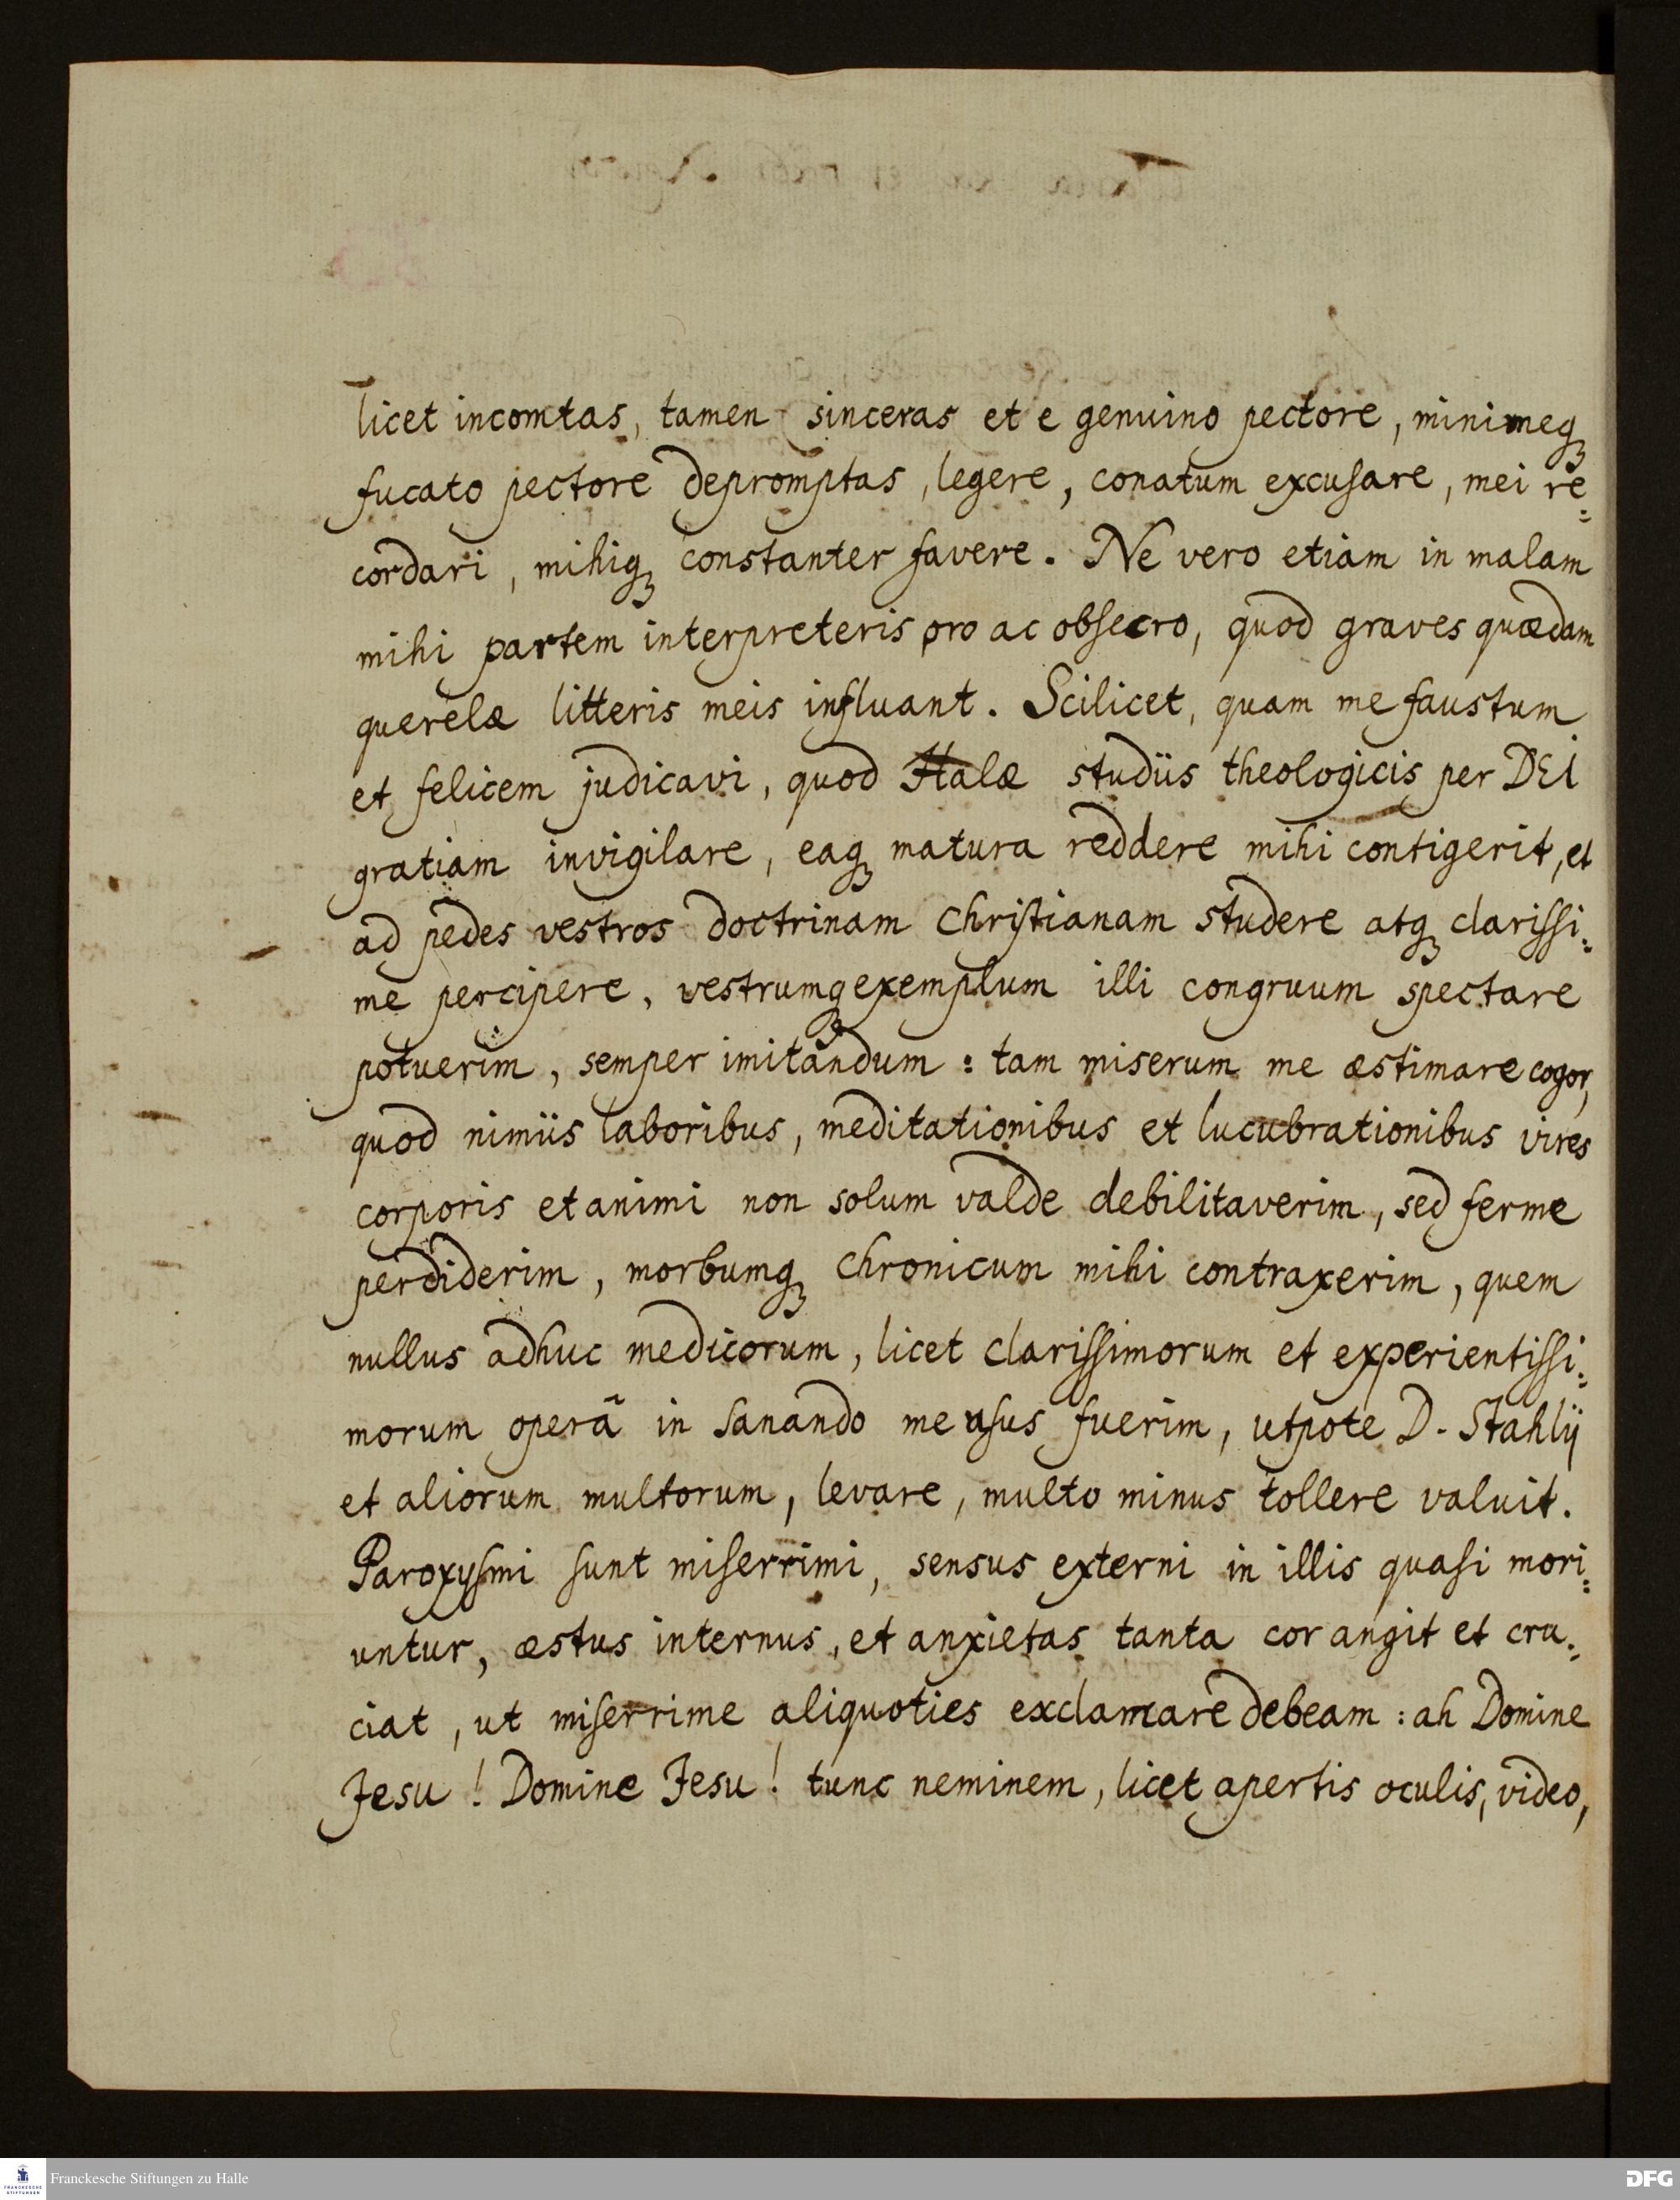 licet incomtas, tamen sinceras et e genuino pectore, minimeq́ꝫ
fucato pectore depromptas, legere, conatum excusare, mei re=
cordari, mihiqꝫ constanter favere. Ne vero etiam in malam
mihi partem interpreteris oro ac obsecro, quod graves quædam
querelæ litteris meis influant. Scilicet, quam me faustum
et felicem judicavi, quod Halæ studiis theologicis per DEI
gratiam invigilare, eaqꝫ matura reddere mihi contigerit, et
ad pedes vestros doctrinam Christianam studere atqꝫ clarissi=
me percipere, vestrumqꝫ exemplum illi congruum spectare
potuerim, semper imitandum: tam miserum me æstimare cogor,
quod nimiis laboribus, meditationibus et lucubrationibus vires
corporis et animi non solum valde debilitaverim, sed ferme
perdiderim, morbumqꝫ chronicum mihi contraxerim, quem
nullus adhuc medicorum, licet clarissimorum et experientissi=
morum operâ in sanando me usus fuerim, utpote D. Stahlij
et aliorum multorum, levare, multo minus tollere valuit.
Paroxysmi sunt miserrimi, sensus externi in illis quasi mori=
untur, æstus internus, et anxietas tanta cor angit et cru=
ciat, ut miserrime aliquoties exclamare debeam: ah Domine
Jesu! Domine Jesu! tunc neminem, licet apertis oculis, video,
Franckesche Stiftungen zu Halle
FRANCKESCHE
STIFTUNGEN
DFG